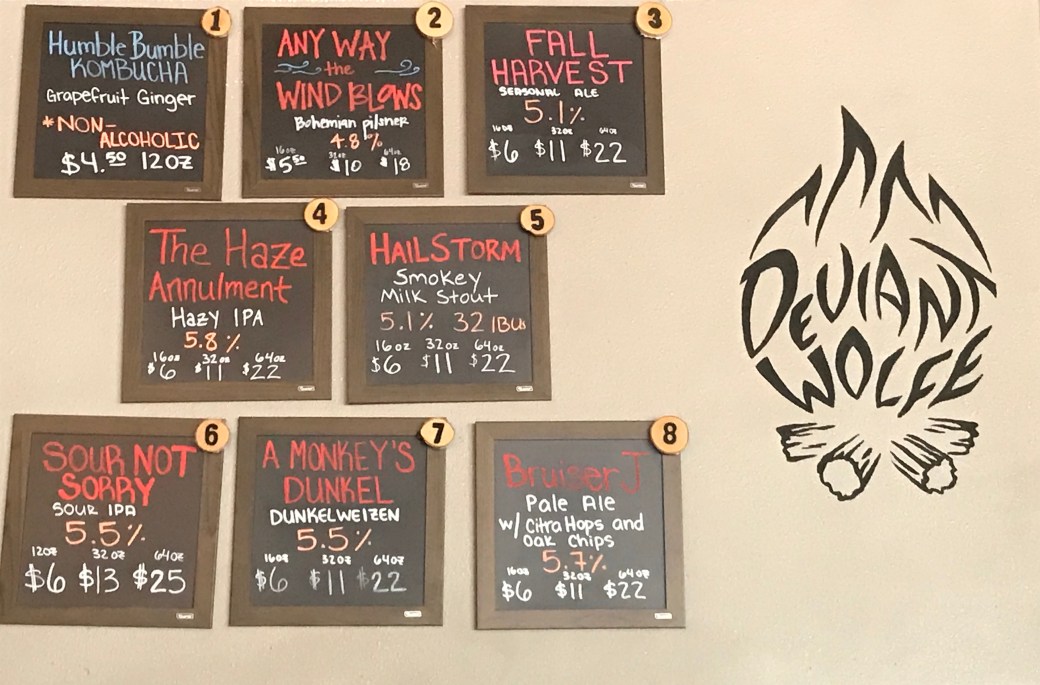 1
Humble Bumble
KOMBUCHA
Grapefruit Ginger
*NON-
ALCOHOLIC
$4.50 12oz
2
ANY WAY
the
WIND BLOWS
Bohemian pilsner
4.8%
16oz 32oz 64oz
$5.50 $10 $18
3
FALL
HARVEST
SEASONAL ALE
5.1%
16oz 32oz 64oz
$6 $11 $22
4
The Haze
Annulment
Hazy IPA
5.8%
16oz 32oz 64oz
$6 $11 $22
5
HAILSTORM
Smokey
Milk Stout
5.1% 32 IBUs
16oz 32oz 64oz
$6 $11 $22
6
SOUR NOT
SORRY
SOUR IPA
5.5%
12oz 32oz 64oz
$6 $13 $25
7
A MONKEY'S
DUNKEL
DUNKELWEIZEN
5.5%
16oz 32oz 64oz
$6 $11 $22
8
Bruiser J
Pale Ale
w/ Citra Hops and
Oak Chips
5.7%
16oz 32oz 64oz
$6 $11 $22
DEVIANT
WOLFE